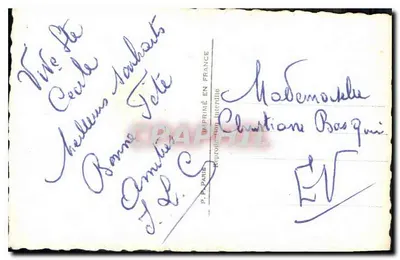 Vive Ste
Cecile
Meilleurs souhaits
Bonne Fete
Amitiés
J. L. C
P. F. PARIS
IMPRIMÉ EN FRANCE
Reproduction Interdite
Mademoiselle
Christiane
EV